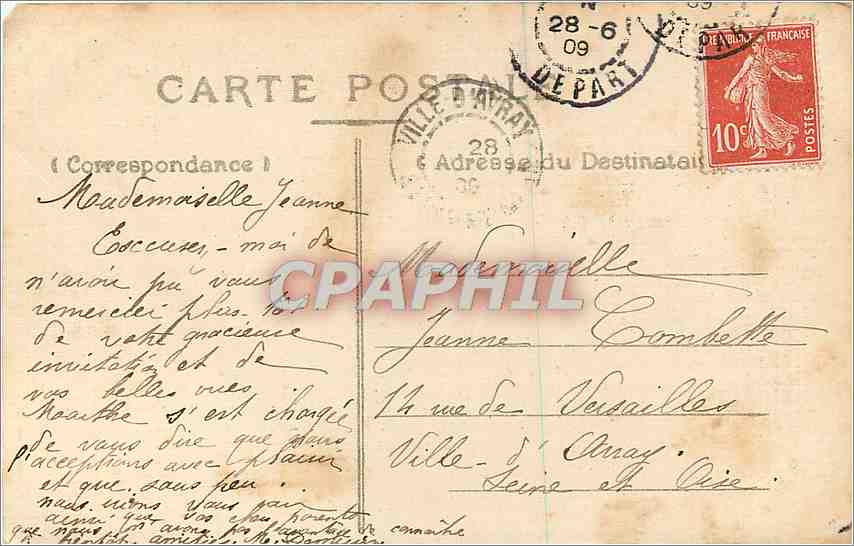 N
28-6
09
DEPART
09
DEPART
REPUBLIQUE FRANÇAISE
10c
POSTES
CARTE POSTALE
VILLE D'AVRAY
28
09
(Correspondance)
Adresse du Destinatai
Mademoiselle Jeanne
Excusez-moi de
n'avoir pu vous
remercier plus tôt
de votre gracieuse
invitation et de
vos belles vues
Marthe s'est chargée
de vous dire que nous
l'acceptions avec plaisir
et que sous peu
nous irions vous voir
ainsi que vos chers parents
que nous n'avons pas l'avantage de connaître
amitiés. M.
Mademoiselle
Jeanne Combette
14 rue de Versailles
Ville-d'Avray.
Seine et Oise.
CPAPHIL